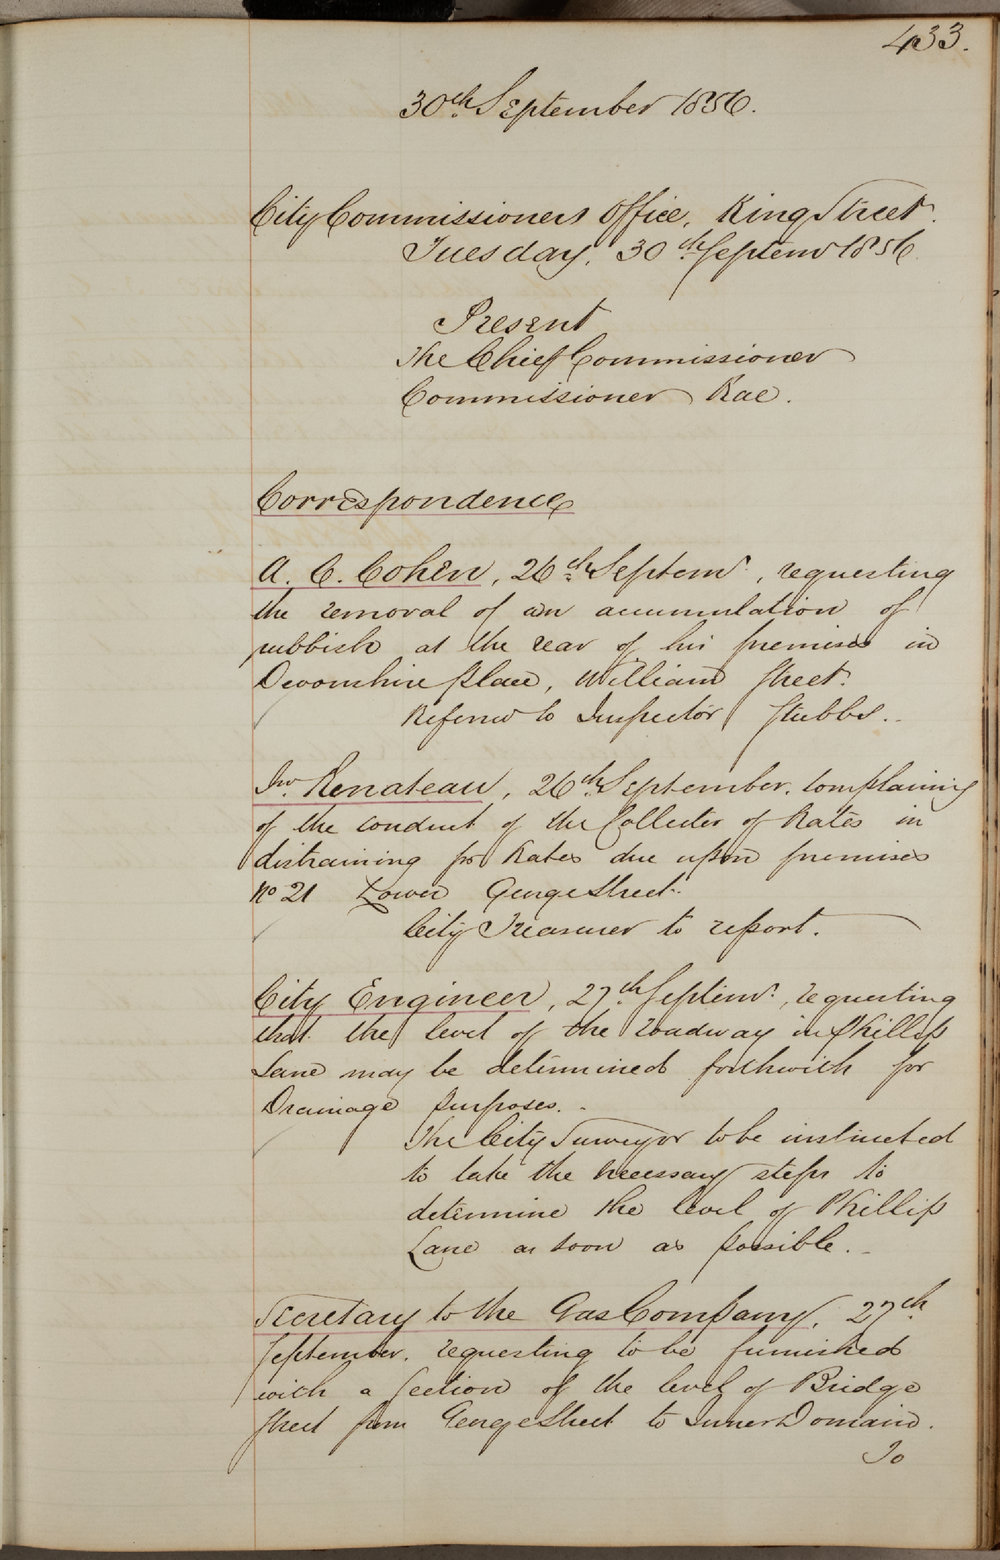 433.
30th September 1856.
City Commissioners Office, King Street.
Tuesday, 30th Septemr 1856
Present
The Chief Commissioner
Commissioner Rae.
Correspondence
A. C. Cohen, 26th Septemr., requesting
the removal of an accumulation of
rubbish at the rear of his premises in
Devonshire place, William Street.
Referred to Inspector Stubbs.
Jno. Renateau, 26th September. complaining
of the conduct of the Collector of Rates in
distraining for Rates due upon premises
No 21 Lower George Street.
City Treasurer to report.
City Engineer, 27th Septemr., requesting
that the level of the roadway in Phillip
Lane may be determined forthwith for
Drainage purposes.
The City Surveyor to be instructed
to take the necessary steps to
determine the level of Phillip
Lane as soon as possible.
Secretary to the Gas Company, 27th
September. requesting to be furnished
with a Section of the level of Bridge
Street from George Street to Inner Domain.
To